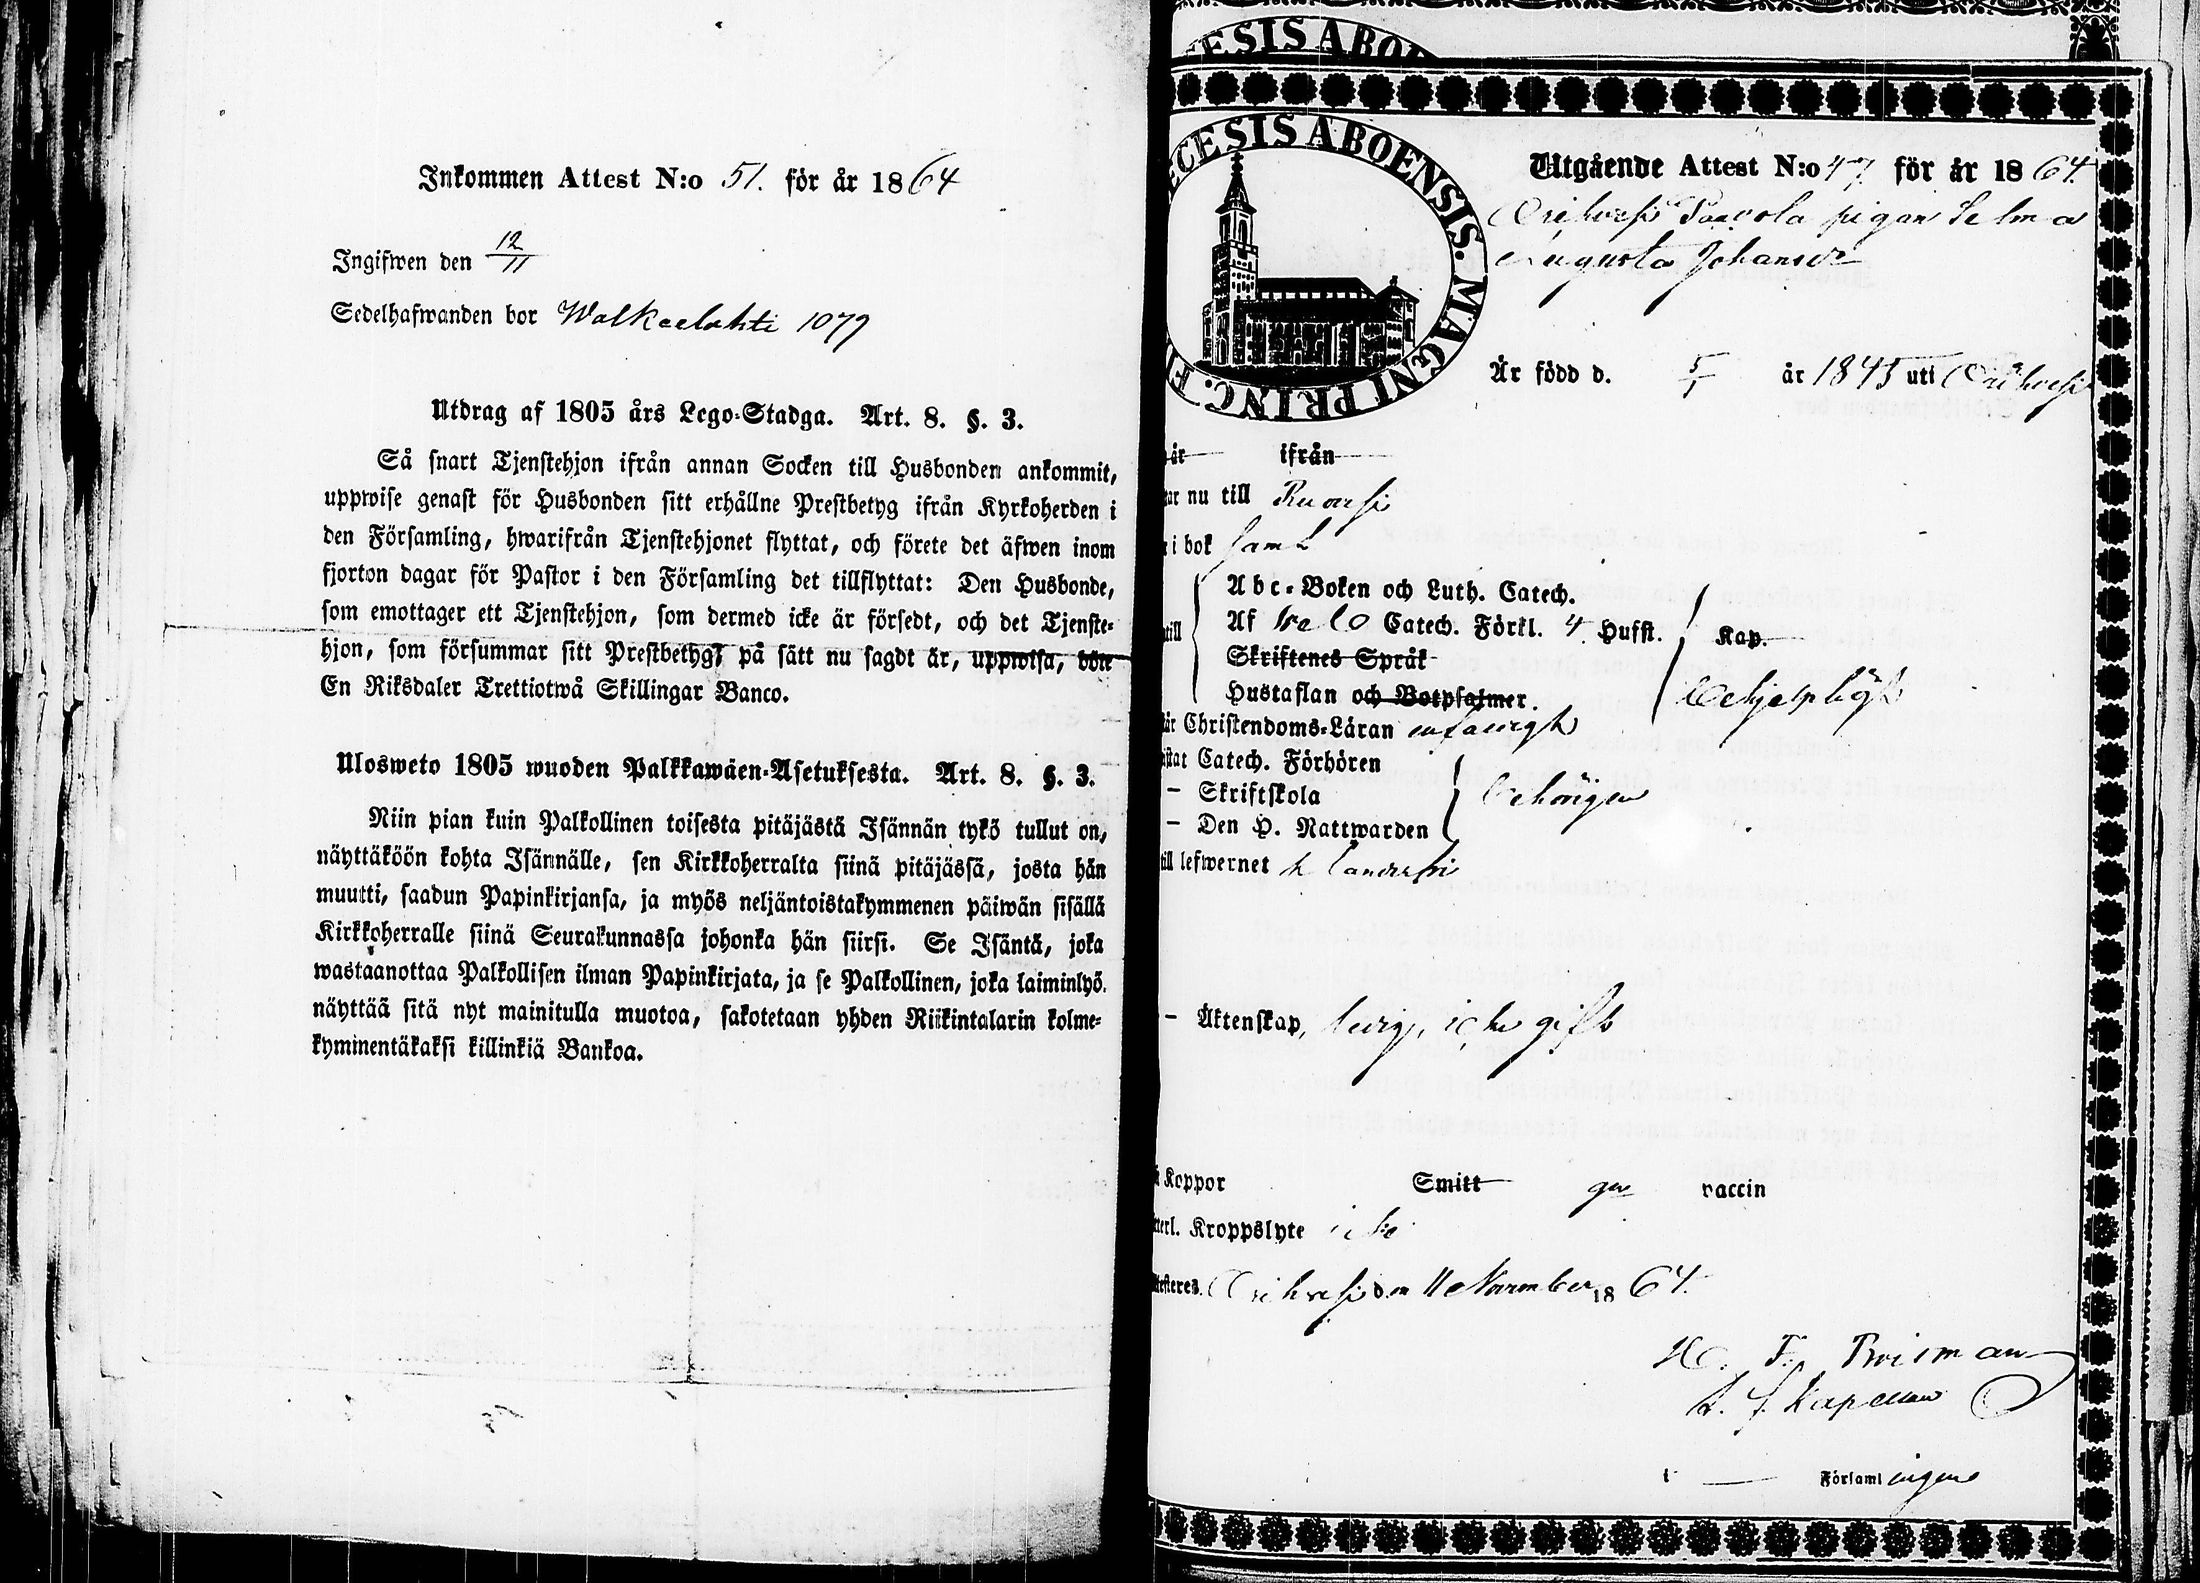 Inkommen Attest N:o 51. för år 1864
Ingifwen den 12/11
Sedelhafwanden bor Walkeelahti 1079
Utdrag af 1805 års Lego-Stadga. Art. 8. §. 3.
Så snart Tjenstehjon ifrån annan Socken till Husbonden ankommit,
uppwise genast för Husbonden sitt erhållne Prestbetyg ifrån Kyrkoherden i
den Församling, hwarifrån Tjenstehjonet flyttat, och förete det äfwen inom
fjorton dagar för Pastor i den Församling det tillflyttat: Den Husbonde,
som emottager ett Tjenstehjon, som dermed icke är försedt, och det Tjenste-
hjon, som försummar sitt Prestbetyg, på sätt nu sagdt är, uppwisa, böte
En Riksdaler Trettiotwå Skillingar Banco.
Ulosweto 1805 wuoden Palkkawäen-Asetuksesta. Art. 8. §. 3.
Niin pian kuin Palkollinen toisesta pitäjästä Isännän tykö tullut on,
näyttäköön kohta Isännälle, sen Kirkkoherralta siinä pitäjässä, josta hän
muutti, saadun Papinkirjansa, ja myös neljäntoistakymmenen päiwän sisällä
Kirkkoherralle siinä Seurakunnassa johonka hän siirsi. Se Isäntä, joka
wastaanottaa Palkollisen ilman Papinkirjata, ja se Palkollinen, joka laiminlyö
näyttää sitä nyt mainitulla muotoa, sakotetaan yhden Riikintalarin kolme-
kyminentäkaksi killinkiä Bankoa.
ESIS ABO
ECESIS ABOENSIS. MAGNI PRINC. F
Utgående Attest N:o 47. för år 1864.
Orihvesi Paavola pigan Selma
Augusta Johansd:r
Är född d. 5/1 år 1845 uti Orihvesi
år ifrån
nu till Ruovesi
i bok samt
Abc-Boken och Luth. Catech.
till Af Catech. Förkl. 4 Hufst. Kap.
Skriftenes Språk
Hustaflan och Botpsalmer. behjelpligt
Christendoms-Läran
Catech. Förhören
- Skriftskola behörigen
- Den H. Nattwarden
till lefwernet
- Äktenskap, ledig, icke gift
Koppor Smitt gm vaccin
Kroppslyte icke
Orihvesi den 11 November 1864.
H. F. Twisman
t. f. Kapellan
i — Församlingen